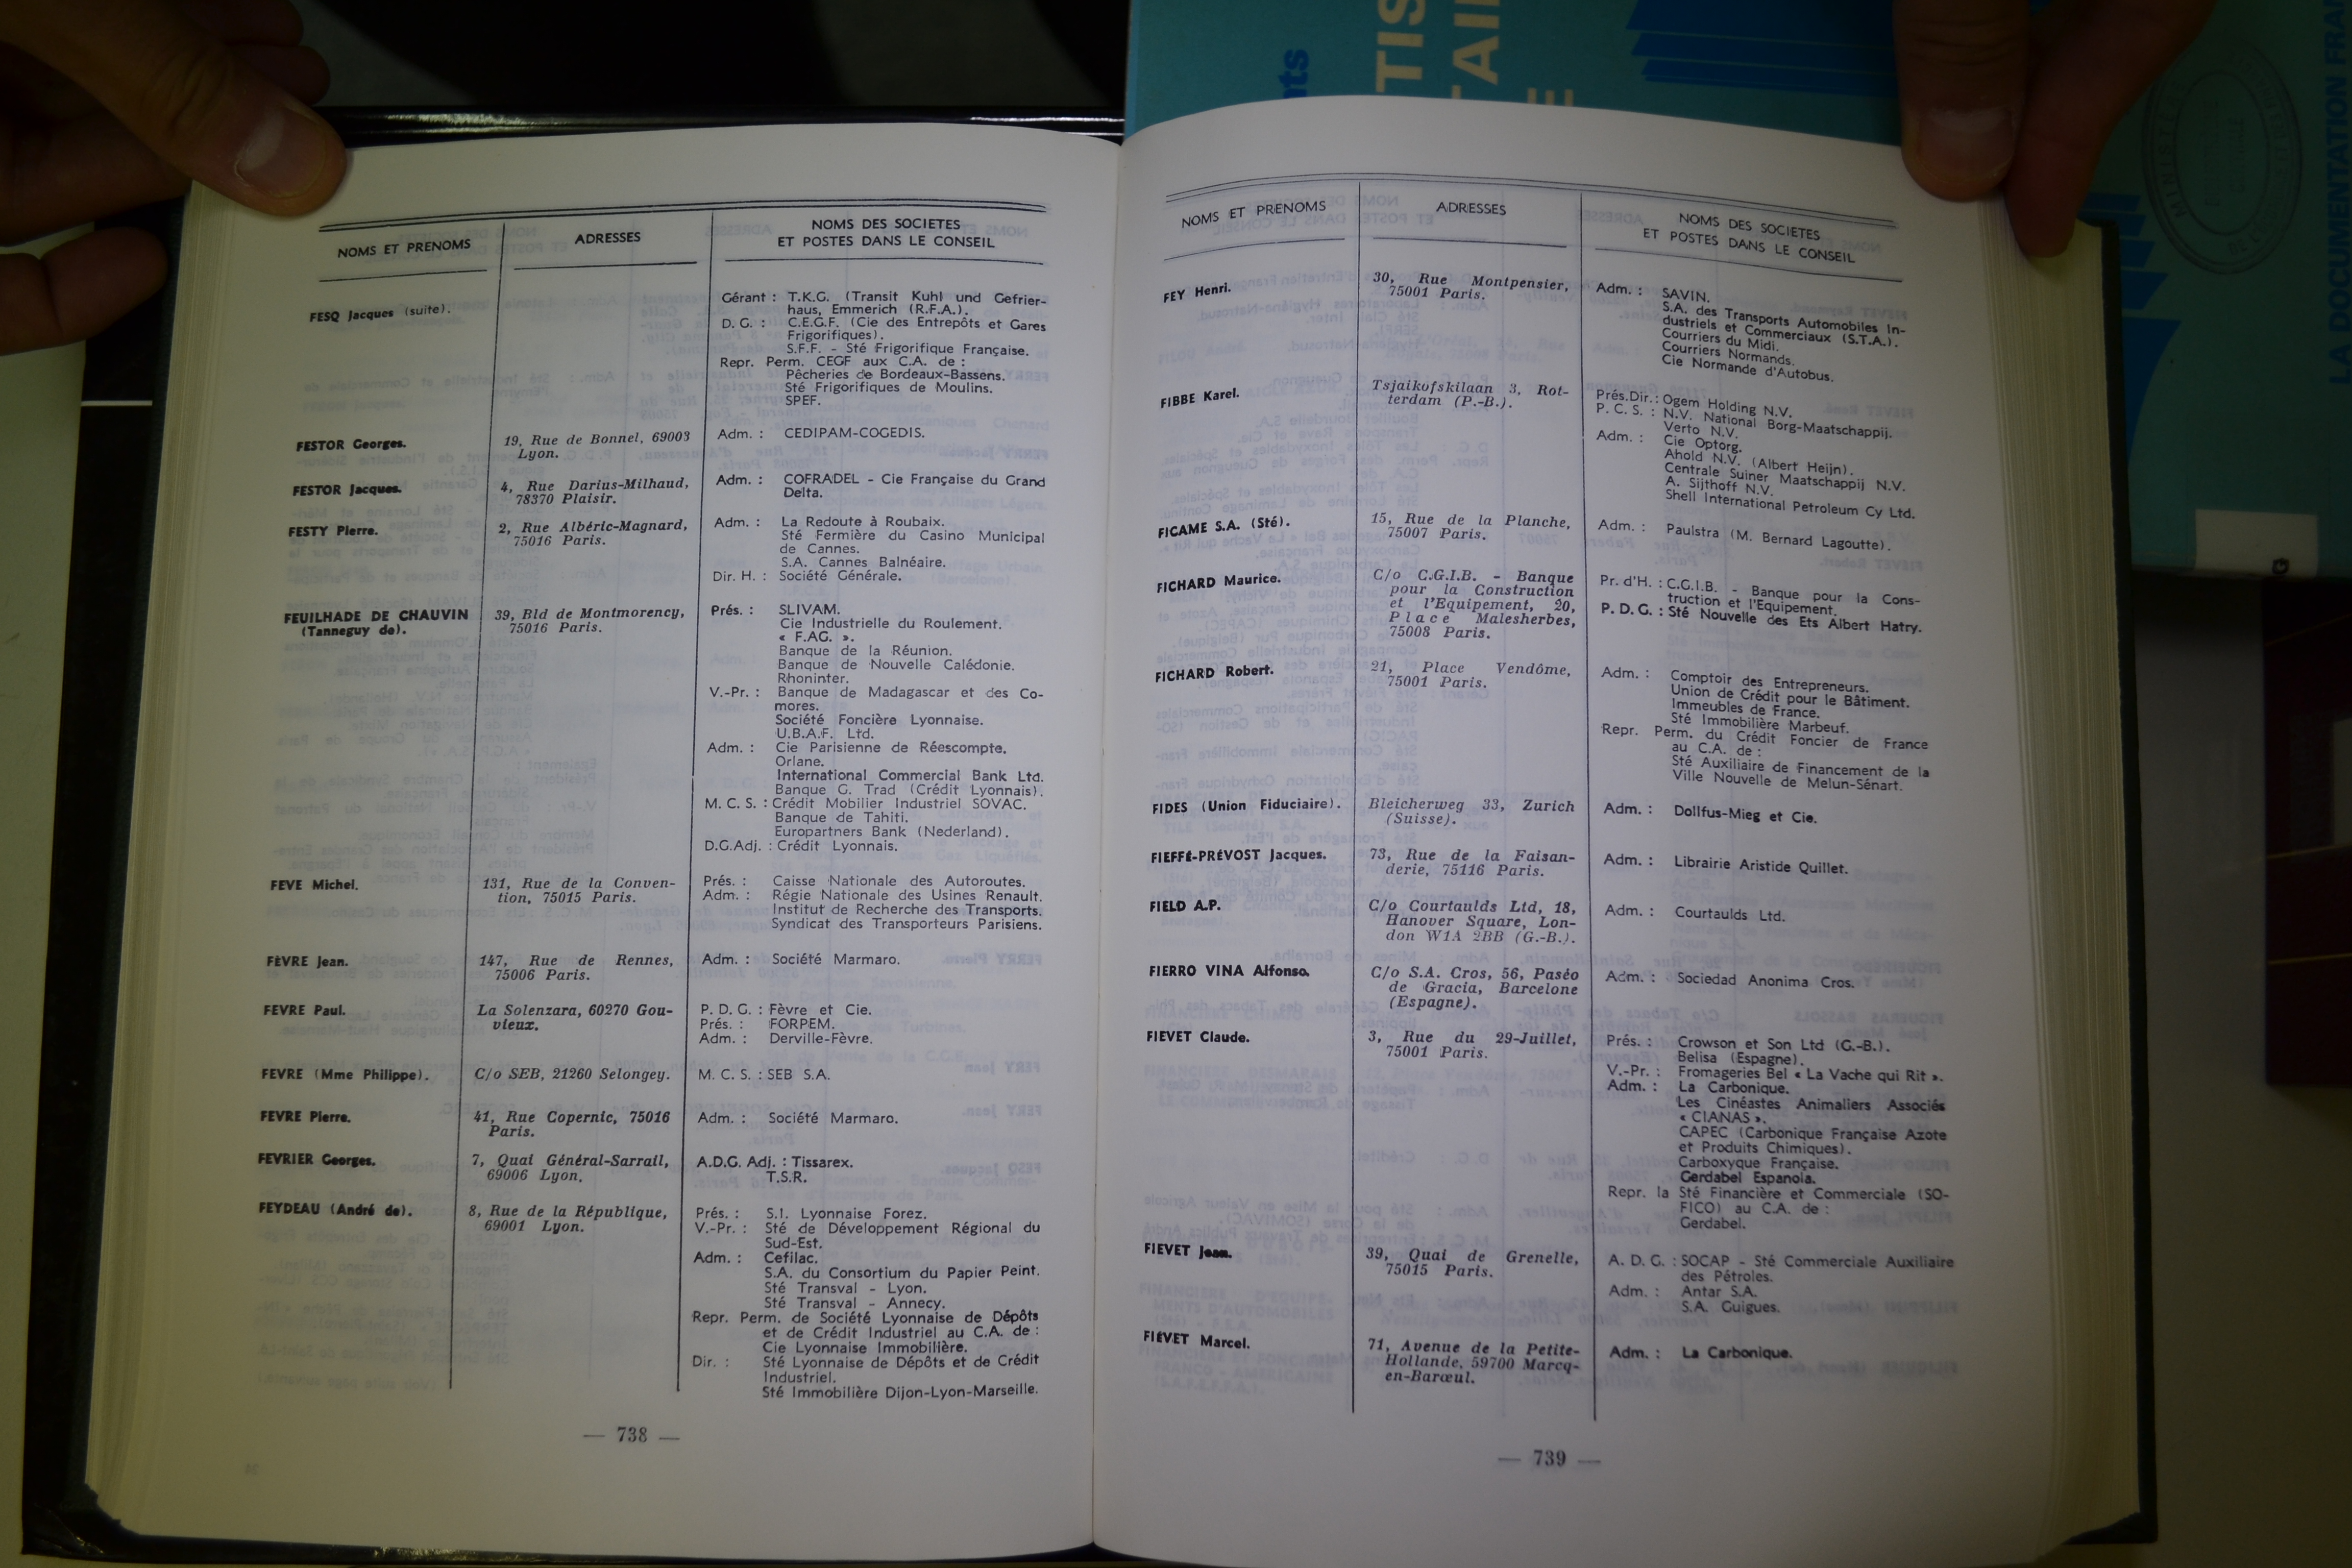 NOMS ET PRENOMS
ADRESSES
NOMS DES SOCIETES
ET POSTES DANS LE CONSEIL
FESQ Jacques (suite).
Gérant : T.K.G. (Transit Kuhl und Gefrier-
haus, Emmerich (R.F.A.).
D. G. : C.E.G.F. (Cie des Entrepôts et Gares
Frigorifiques).
S.F.F. - Sté Frigorifique Française.
Repr. Perm. CEGF aux C.A. de :
Pêcheries de Bordeaux-Bassens.
Sté Frigorifiques de Moulins.
SPEF.
FESTOR Georges.
19, Rue de Bonnel, 69003
Lyon.
Adm. : CEDIPAM-COGEDIS.
FESTOR Jacques.
4, Rue Darius-Milhaud,
78370 Plaisir.
Adm. : COFRADEL - Cie Française du Grand
Delta.
FESTY Pierre.
2, Rue Albéric-Magnard,
75016 Paris.
Adm. : La Redoute à Roubaix.
Sté Fermière du Casino Municipal
de Cannes.
S.A. Cannes Balnéaire.
Dir. H. : Société Générale.
FEUILHADE DE CHAUVIN
(Tanneguy de).
39, Bld de Montmorency,
75016 Paris.
Prés. : SLIVAM.
Cie Industrielle du Roulement.
« F.AG. ».
Banque de la Réunion.
Banque de Nouvelle Calédonie.
Rhoninter.
V.-Pr. : Banque de Madagascar et des Co-
mores.
Société Foncière Lyonnaise.
U.B.A.F. Ltd.
Adm. : Cie Parisienne de Réescompte.
Orlane.
International Commercial Bank Ltd.
Banque G. Trad (Crédit Lyonnais).
M. C. S. : Crédit Mobilier Industriel SOVAC.
Banque de Tahiti.
Europartners Bank (Nederland).
D.G.Adj. : Crédit Lyonnais.
FEVE Michel.
131, Rue de la Conven-
tion, 75015 Paris.
Prés. : Caisse Nationale des Autoroutes.
Adm. : Régie Nationale des Usines Renault.
Institut de Recherche des Transports.
Syndicat des Transporteurs Parisiens.
FÈVRE Jean.
147, Rue de Rennes,
75006 Paris.
Adm. : Société Marmaro.
FEVRE Paul.
La Solenzara, 60270 Gou-
vieux.
P. D. G. : Fèvre et Cie.
Prés. : FORPEM.
Adm. : Derville-Fèvre.
FEVRE (Mme Philippe).
C/o SEB, 21260 Selongey.
M. C. S. : SEB S.A.
FEVRE Pierre.
41, Rue Copernic, 75016
Paris.
Adm. : Société Marmaro.
FEVRIER Georges.
7, Quai Général-Sarrail,
69006 Lyon.
A.D.G. Adj. : Tissarex.
T.S.R.
FEYDEAU (André de).
8, Rue de la République,
69001 Lyon.
Prés. : S.I. Lyonnaise Forez.
V.-Pr. : Sté de Développement Régional du
Sud-Est.
Adm. : Cefilac.
S.A. du Consortium du Papier Peint.
Sté Transval - Lyon.
Sté Transval - Annecy.
Repr. Perm. de Société Lyonnaise de Dépôts
et de Crédit Industriel au C.A. de :
Cie Lyonnaise Immobilière.
Dir. : Sté Lyonnaise de Dépôts et de Crédit
Industriel.
Sté Immobilière Dijon-Lyon-Marseille.
— 738 —
NOMS ET PRENOMS
ADRESSES
NOMS DES SOCIETES
ET POSTES DANS LE CONSEIL
FEY Henri.
30, Rue Montpensier,
75001 Paris.
Adm. : SAVIN.
S.A. des Transports Automobiles In-
dustriels et Commerciaux (S.T.A.).
Courriers du Midi.
Courriers Normands.
Cie Normande d'Autobus.
FIBBE Karel.
Tsjaikofskilaan 3, Rot-
terdam (P.-B.).
Prés.Dir. : Ogem Holding N.V.
P. C. S. : N.V. National Borg-Maatschappij.
Verto N.V.
Adm. : Cie Optorg.
Ahold N.V. (Albert Heijn).
Centrale Suiner Maatschappij N.V.
A. Sijthoff N.V.
Shell International Petroleum Cy Ltd.
FICAME S.A. (Sté).
15, Rue de la Planche,
75007 Paris.
Adm. : Paulstra (M. Bernard Lagoutte).
FICHARD Maurice.
C/o C.G.I.B. - Banque
pour la Construction
et l'Equipement, 20,
Place Malesherbes,
75008 Paris.
Pr. d'H. : C.G.I.B. - Banque pour la Cons-
truction et l'Equipement.
P. D. G. : Sté Nouvelle des Ets Albert Hatry.
FICHARD Robert.
21, Place Vendôme,
75001 Paris.
Adm. : Comptoir des Entrepreneurs.
Union de Crédit pour le Bâtiment.
Immeubles de France.
Sté Immobilière Marbeuf.
Repr. Perm. du Crédit Foncier de France
au C.A. de :
Sté Auxiliaire de Financement de la
Ville Nouvelle de Melun-Sénart.
FIDES (Union Fiduciaire).
Bleicherweg 33, Zurich
(Suisse).
Adm. : Dollfus-Mieg et Cie.
FIEFFÉ-PRÉVOST Jacques.
73, Rue de la Faisan-
derie, 75116 Paris.
Adm. : Librairie Aristide Quillet.
FIELD A.P.
C/o Courtaulds Ltd, 18,
Hanover Square, Lon-
don W1A 2BB (G.-B.).
Adm. : Courtaulds Ltd.
FIERRO VINA Alfonso.
C/o S.A. Cros, 56, Paséo
de Gracia, Barcelone
(Espagne).
Adm. : Sociedad Anonima Cros.
FIEVET Claude.
3, Rue du 29-Juillet,
75001 Paris.
Prés. : Crowson et Son Ltd (G.-B.).
Belisa (Espagne).
V.-Pr. : Fromageries Bel « La Vache qui Rit ».
Adm. : La Carbonique.
Les Cinéastes Animaliers Associés
« CIANAS ».
CAPEC (Carbonique Française Azote
et Produits Chimiques).
Carboxyque Française.
Gerdabel Espanola.
Repr. la Sté Financière et Commerciale (SO-
FICO) au C.A. de :
Gerdabel.
FIEVET Jean.
39, Quai de Grenelle,
75015 Paris.
A. D. G. : SOCAP - Sté Commerciale Auxiliaire
des Pétroles.
Adm. : Antar S.A.
S.A. Guigues.
FIÉVET Marcel.
71, Avenue de la Petite-
Hollande, 59700 Marcq-
en-Barœul.
Adm. : La Carbonique.
— 739 —
TIS
TAI
E
nts
LA DOCUMENTATION FRA
G